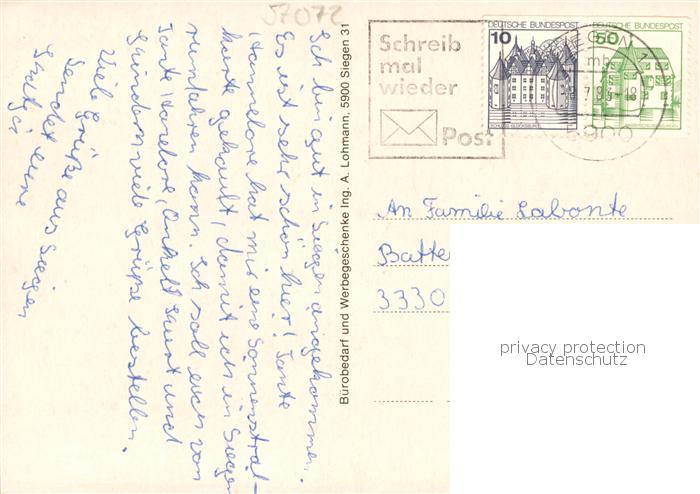 57072
Schreib
mal
wieder
Post
DEUTSCHE BUNDESPOST
10
SCHLOSS GLÜCKSBURG
DEUTSCHE BUNDESPOST
50
SIEGEN 1
5900
Ich bin gut in Siegen angekommen.
Es ist sehr schön hier! Tante
Hannelore hat mir eine Sommerstral-
karte gekauft, damit ich in Siegen
rumfahren kann. Ich soll euch von
Tante Hanelore, Onkel und
viele Grüße bestellen.
Viele Grüße aus Siegen
sendet eure
Bürobedarf und Werbegeschenke Ing. A. Lohmann, 5900 Siegen 31
An Familie Labonte
Batte
3330
privacy protection
Datenschutz